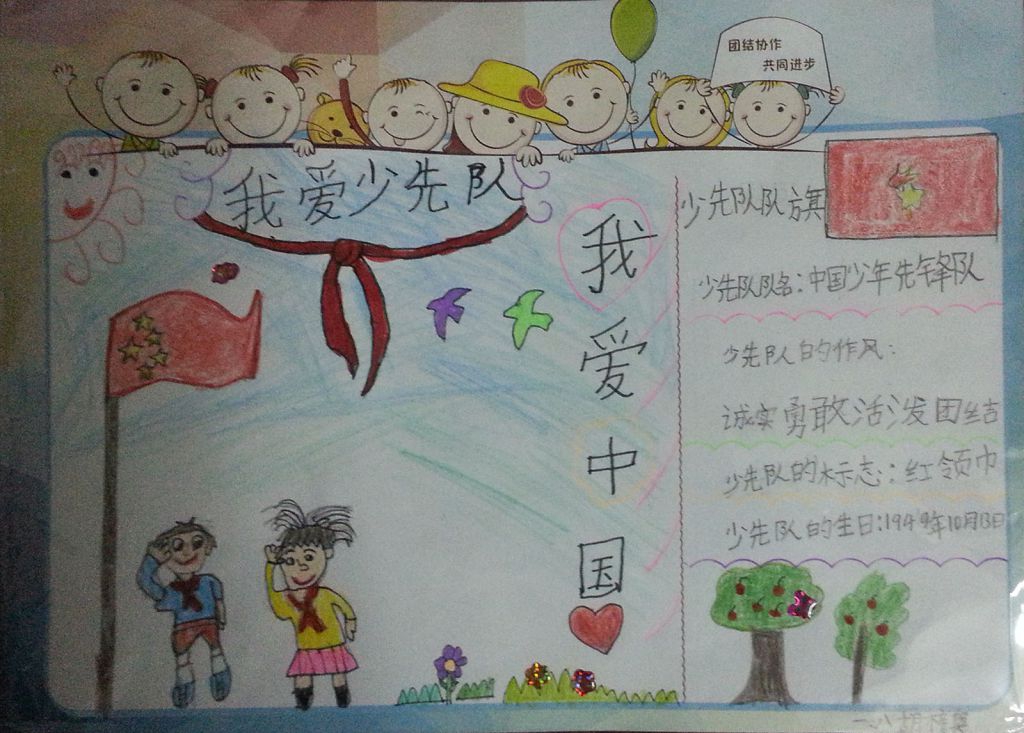 团结协作
共同进步
我爱少先队
我爱中国
少先队队旗
少先队队名:中国少年先锋队
少先队的作风:
诚实勇敢活泼团结
少先队的标志:红领巾
少先队的生日:1949年10月13日
一、八胡